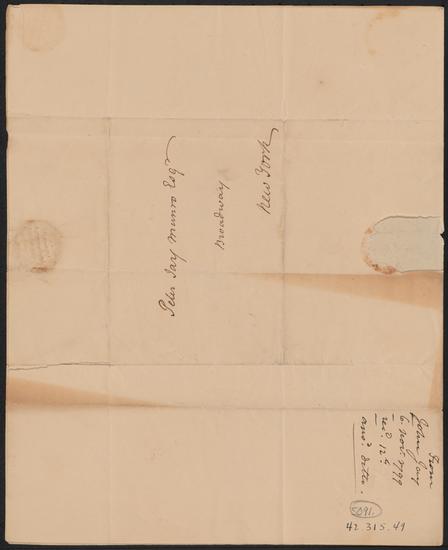 Peter Jay Munro Esqr
Broadway
New York
From
John Jay
6. Novr. 1799
recd. 12th
ansd. ditto.
5091.
42.315.41